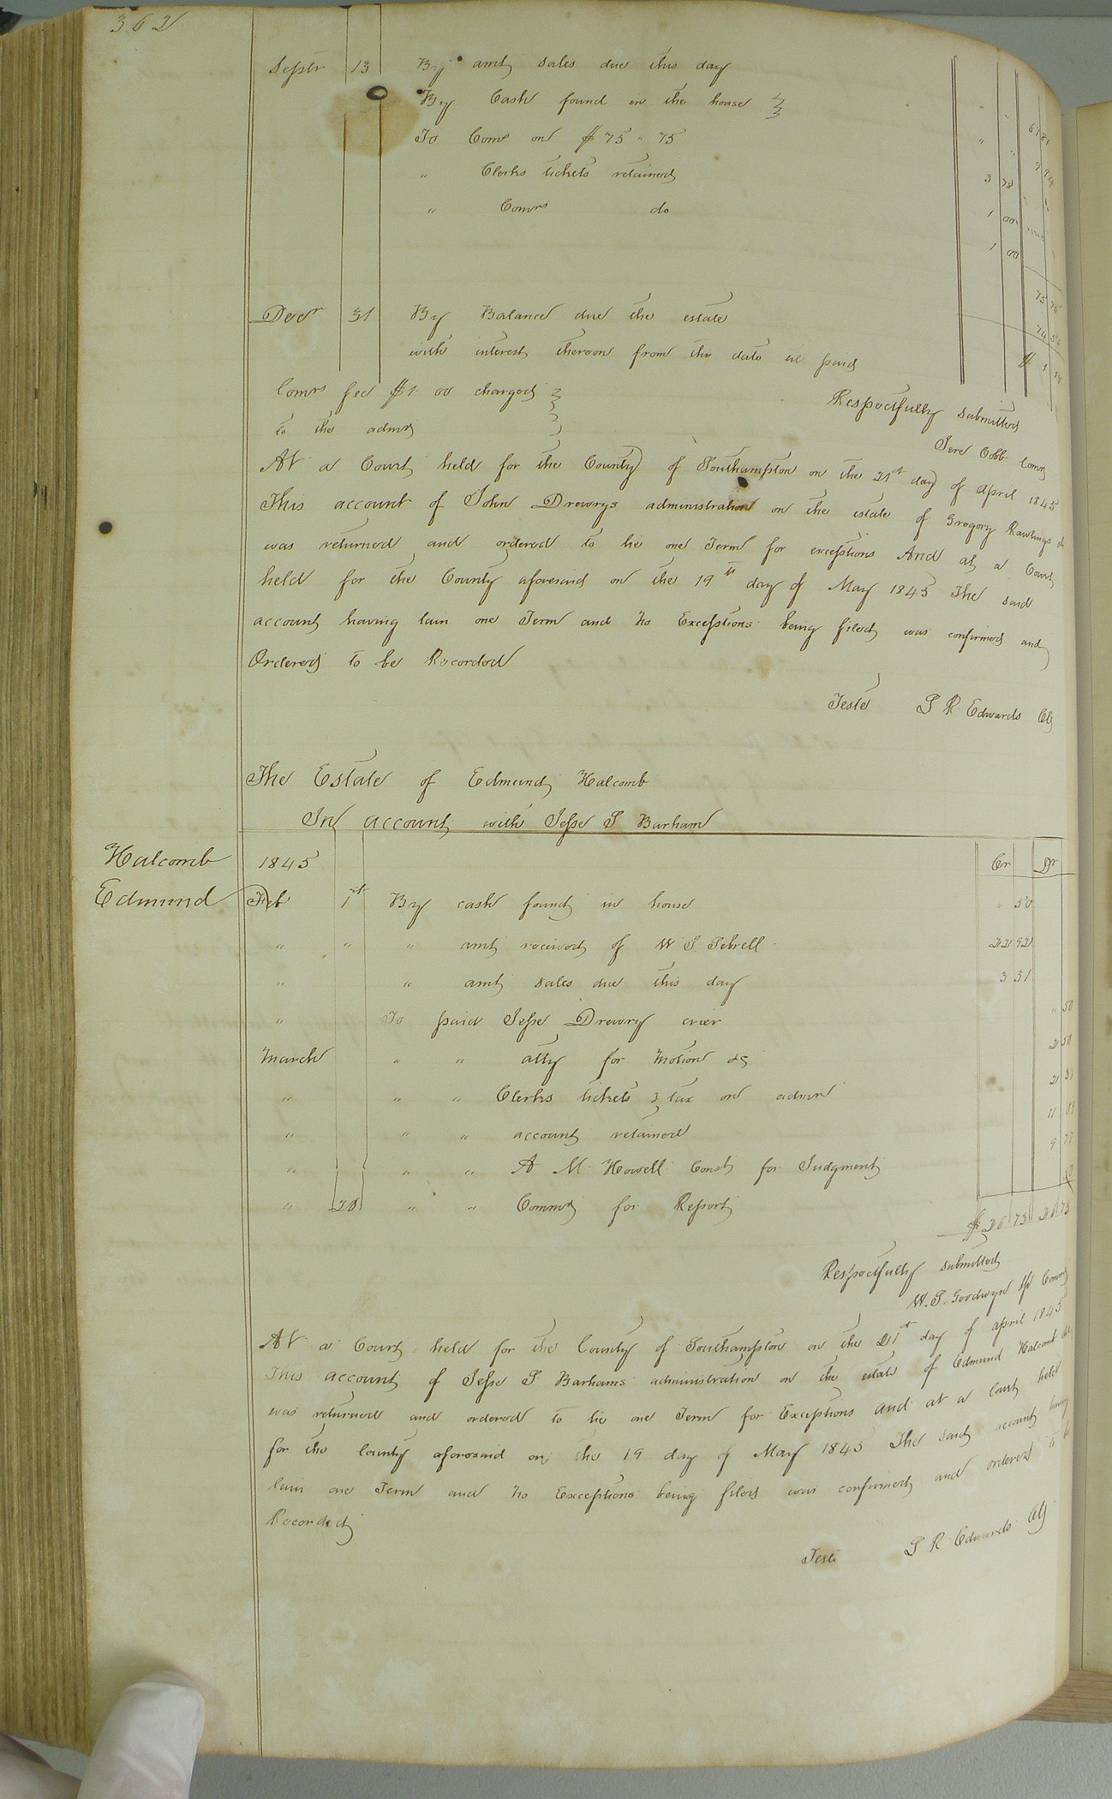 362
Septr 13 By amt sales due this day
By Cash found in the house
To Coms on $75 " 75 3 78
" Clerks tickets retained 1 00
" Comrs do 1 00
75 75
Decr 31 By Balance due the estate
with interest thereon from this date til paid
Comrs fee $1 00 charged
to the admr
Respectfully submitted
Jere Cobb Comr
At a Court held for the County of Southampton on the 21st day of April 1845
This account of John Drewrys administration on the estate of Gregory Rawlings
was returned and ordered to lie one Term for exceptions And at a Court
held for the County aforesaid on the 19th day of May 1845 The said
account having lain one Term and no Exceptions being filed was confirmed and
Ordered to be Recorded
Teste S R Edwards Clk
The Estate of Edmund Halcomb
In account with Jesse S Barham
Cr Dr
Halcomb 1845
Edmund Feb 1st By cash found in house " 50
" " " amt received of W S 22 92
" " amt sales due this day 3 31
" To paid Jesse Drewry crier " 50
March " " atty for Motion &c 2 50
" " " Clerks tickets & tax on admn
" " " account retained
" " " A M Howell Const for Judgment
" 28 " " Commr for Report
$26 73 26 73
Respectfully submitted
W. S. Goodwyn
At a Court held for the County of Southampton on the 21st day of April 1845
This account of Jesse S Barhams administration on the estate of Edmund Halcomb
was returned and ordered to lie one Term for Exceptions and at a Court held
for the County aforesaid on the 19 day of May 1845 The said account having
lain one Term and no Exceptions being filed was confirmed and ordered to be
Recorded
Teste S R Edwards Clk